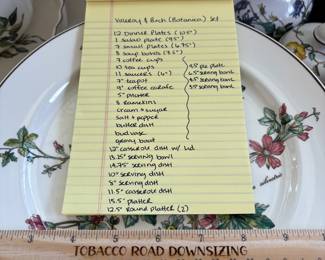 Villeroy & Boch (Botanica) Set
12 Dinner Plates (10.5")
1 salad plate (9.5")
7 small plates (6.75")
8 soup bowls (9.5")
7 coffee cups
10 tea cups
11 saucers (6")
7" teapot
9" coffee carafe
5" pitcher
8 ramekins
cream & sugar
salt & pepper
butter dish
bud vase
gravy boat
9.5" pie plate
6.5" serving bowl
9.5" serving bowl
8.5" serving bowl
12" casserole dish w/ lid
13.25" serving bowl
14.75" serving dish
10" serving dish
8" serving dish
11.5" casserole dish
15.5" platter
12.5" round platter (2)
3 4 5 6 7 8 9
TOBACCO ROAD DOWNSIZING